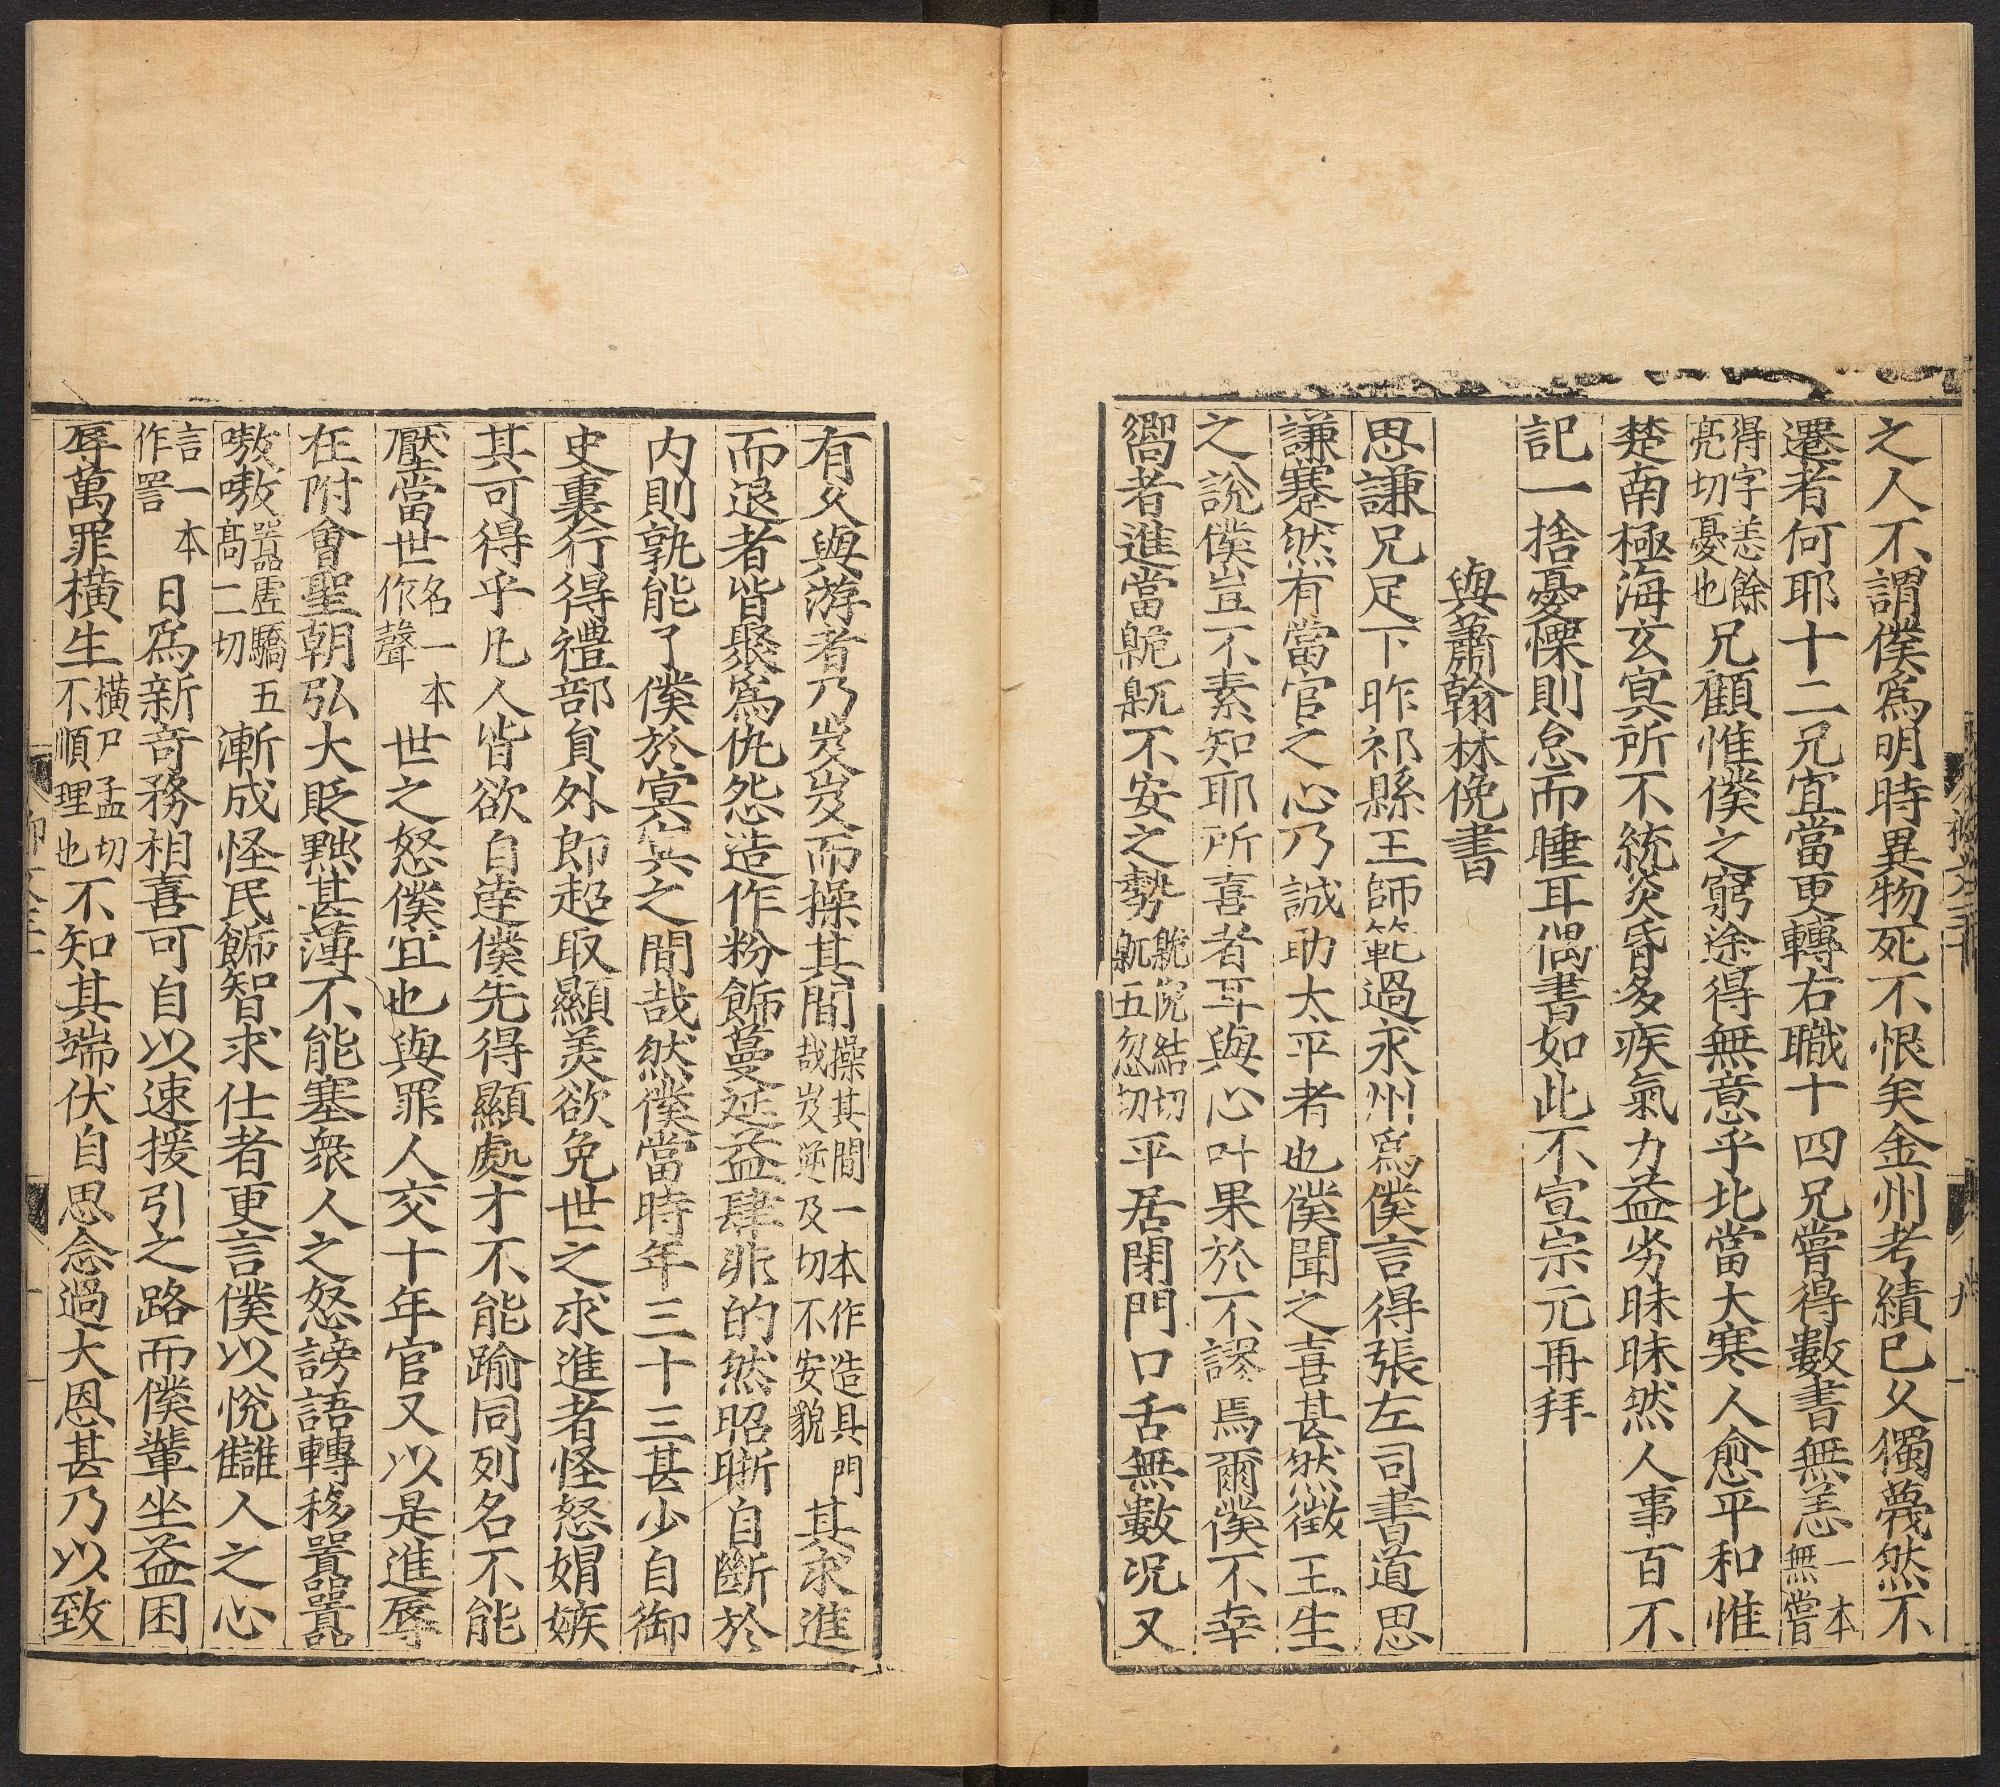 之人不謂僕爲明時異物死不恨矣金州考績已久獨蔑然不
遷者何耶十二兄宜當更轉右職十四兄嘗得數書無恙一本無嘗
得字恙餘亮切憂也兄顧惟僕之窮途得無意乎北當大寒人愈平和惟
楚南極海玄冥所不統炎昏多疾氣力益劣昧昧然人事百不
記一捨憂慄則怠而睡耳偶書如此不宣宗元再拜
與蕭翰林俛書
思謙兄足下昨祁縣王師範過永州爲僕言得張左司書道思
謙蹇然有當官之心乃誠助太平者也僕聞之喜甚然徴王生
之說僕豈不素知耶所喜者耳與心叶果於不謬焉爾僕不幸
嚮者進當臲卼不安之勢臲倪結切卼五忽切平居閉門口舌無數况又
有久與游者乃岌岌而操其間操其間一本作造其門哉岌逆及切不安貌其求進
而退者皆聚爲仇怨造作粉飾蔓延益肆非的然昭晣自斷於
内則孰能了僕於冥冥之間哉然僕當時年三十三甚少自御
史裏行得禮部貟外郎超取顯羙欲免世之求進者怪怒媢嫉
其可得乎凡人皆欲自達僕先得顯處才不能踰同列名不能
壓當世名一本作聲世之怒僕宜也與罪人交十年官又以是進辱
在附會聖朝弘大貶黜甚薄不能塞衆人之怒謗語轉移囂囂
嗷嗷囂虛驕五高二切漸成怪民飾智求仕者更言僕以悅讎人之心
言一本作詈日爲新竒務相喜可自以速援引之路而僕輩坐益困
辱萬罪橫生橫户孟切不順理也不知其端伏自思念過大恩甚乃以致